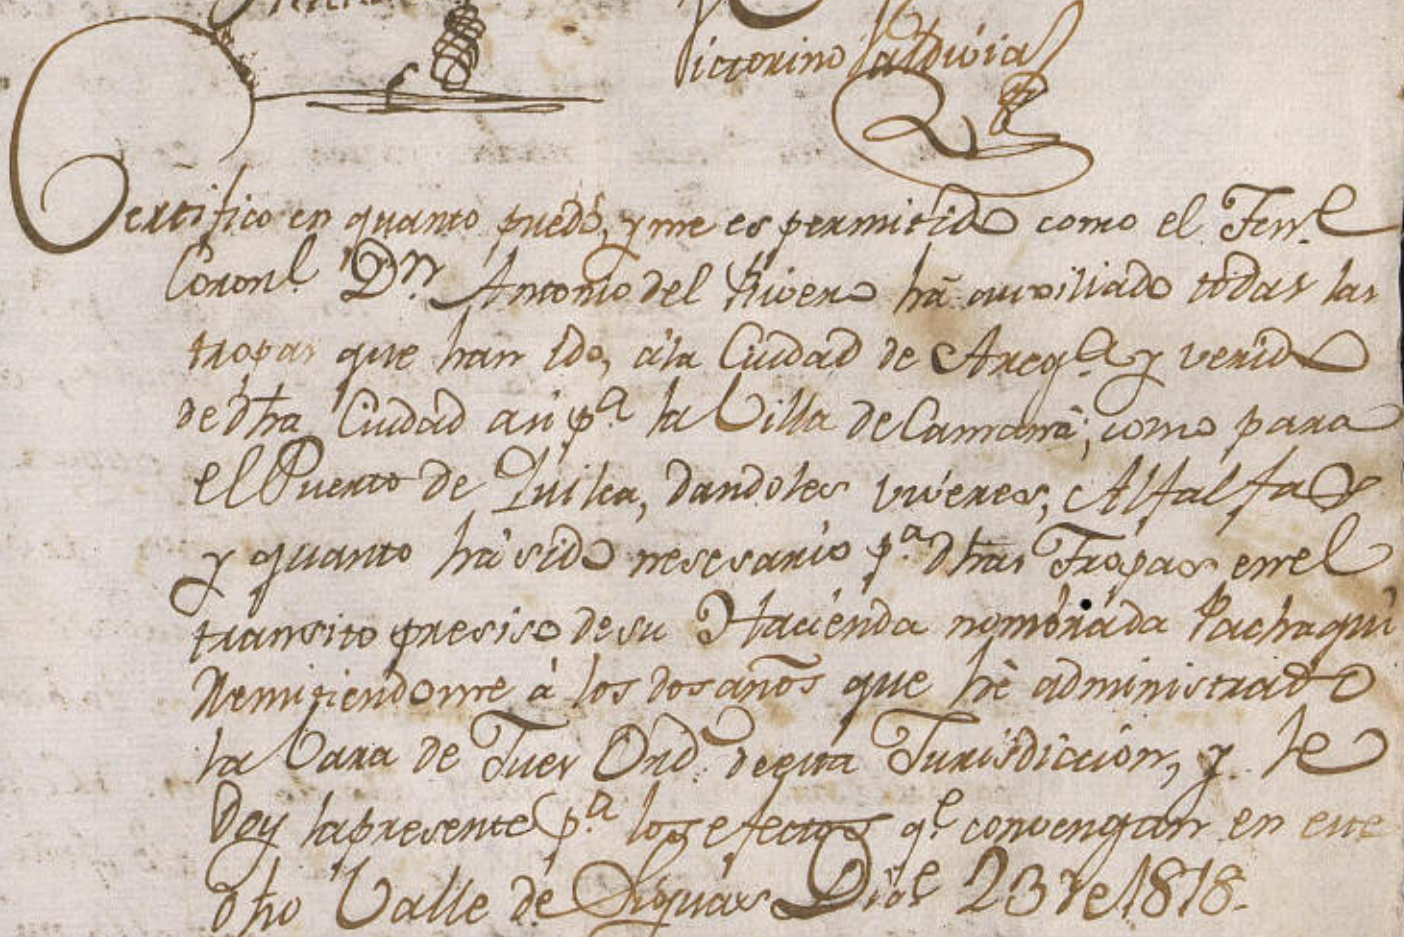 Victorino Valdivia
Certifico en quanto puedo, y me es permitido como el Ten.e
Coron.l D.n Antonio del Rivero há auxiliado todas las
tropas que han ido, á la Ciudad de Areq.a y venido
de dha Ciudad asi p.a la Villa de Camaná, como para
el Puerto de Quilca, dandoles viveres, Alfalfas
y quanto há sido nesesario p.a dhas Tropas en el
transito presiso de su Hacienda nombrada Pachaqui
Remitiendome á los dos años que hé administrado
la Vara de Jues Ord.o de esta Jurisdiccion, y le
Doy la presente p.a los efectos q.e convengan en este
dho Valle de Siguas Dic.e 23 de 1818.